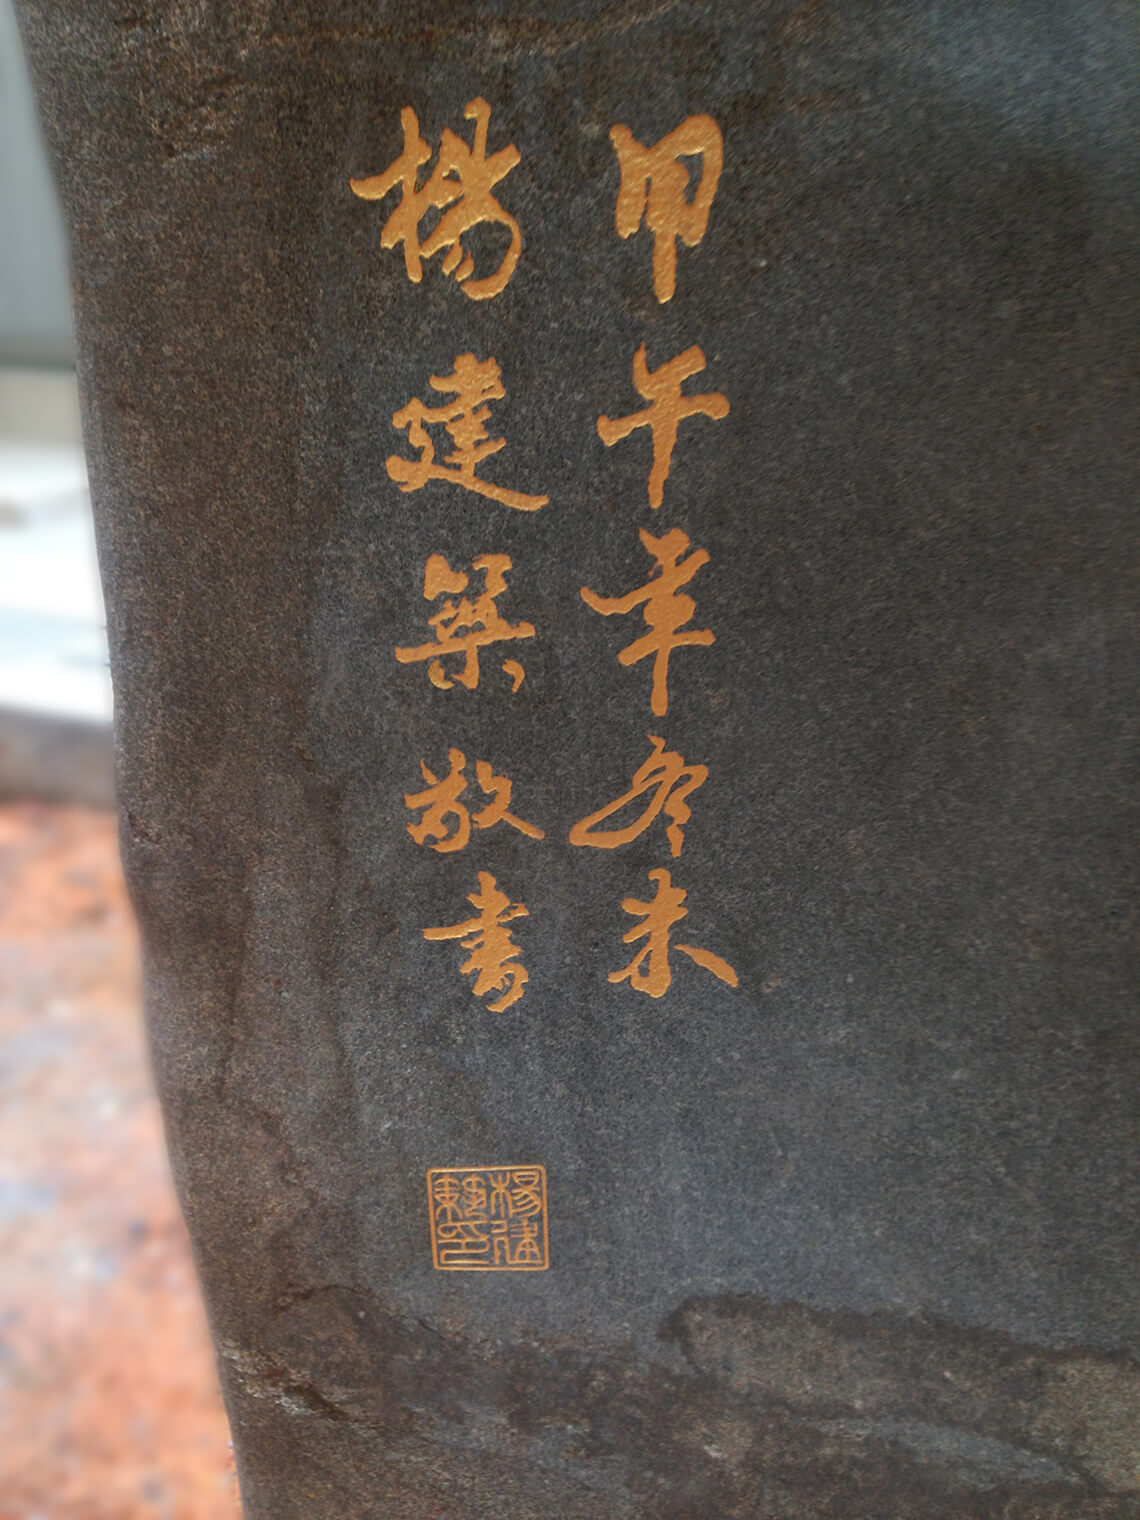 甲午年冬末
楊建築敬書
楊建
印